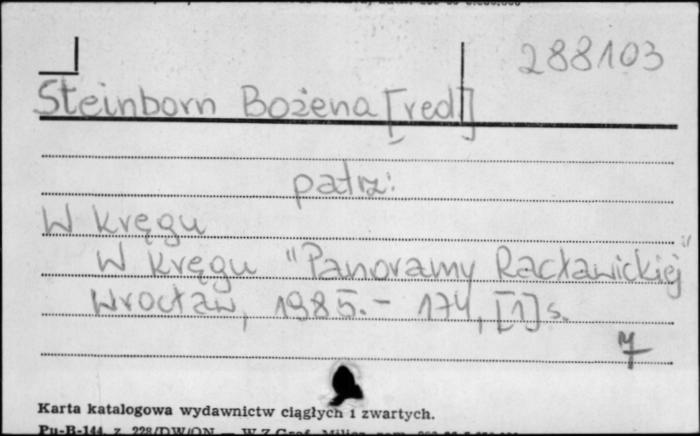 288103
Steinborn Bożena [red]
patrz:
W kręgu
W kręgu "Panoramy Racławickiej"
Wrocław, 1985. - 174, [1] s.
Karta katalogowa wydawnictw ciągłych i zwartych.
Pu-B-144, z. 228/DW/ON — W.Z.Graf.